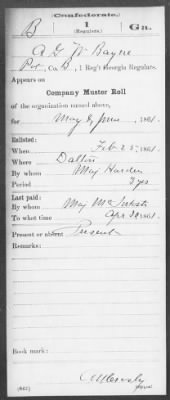 Confederate.
B 1 Ga.
(Regulars.)
A G W Bayne
Pvt, Co. B, 1 Reg't Georgia Regulars.
Appears on
Company Muster Roll
of the organization named above,
for May & June, 1861.
Enlisted:
When Feb 25, 1861.
Where Dalton
By whom Maj Hardee
Period 3 ys
Last paid:
By whom Maj
To what time Apr 30, 1861.
Present or absent Present
Remarks:
Book mark:
(642)
Copyist.